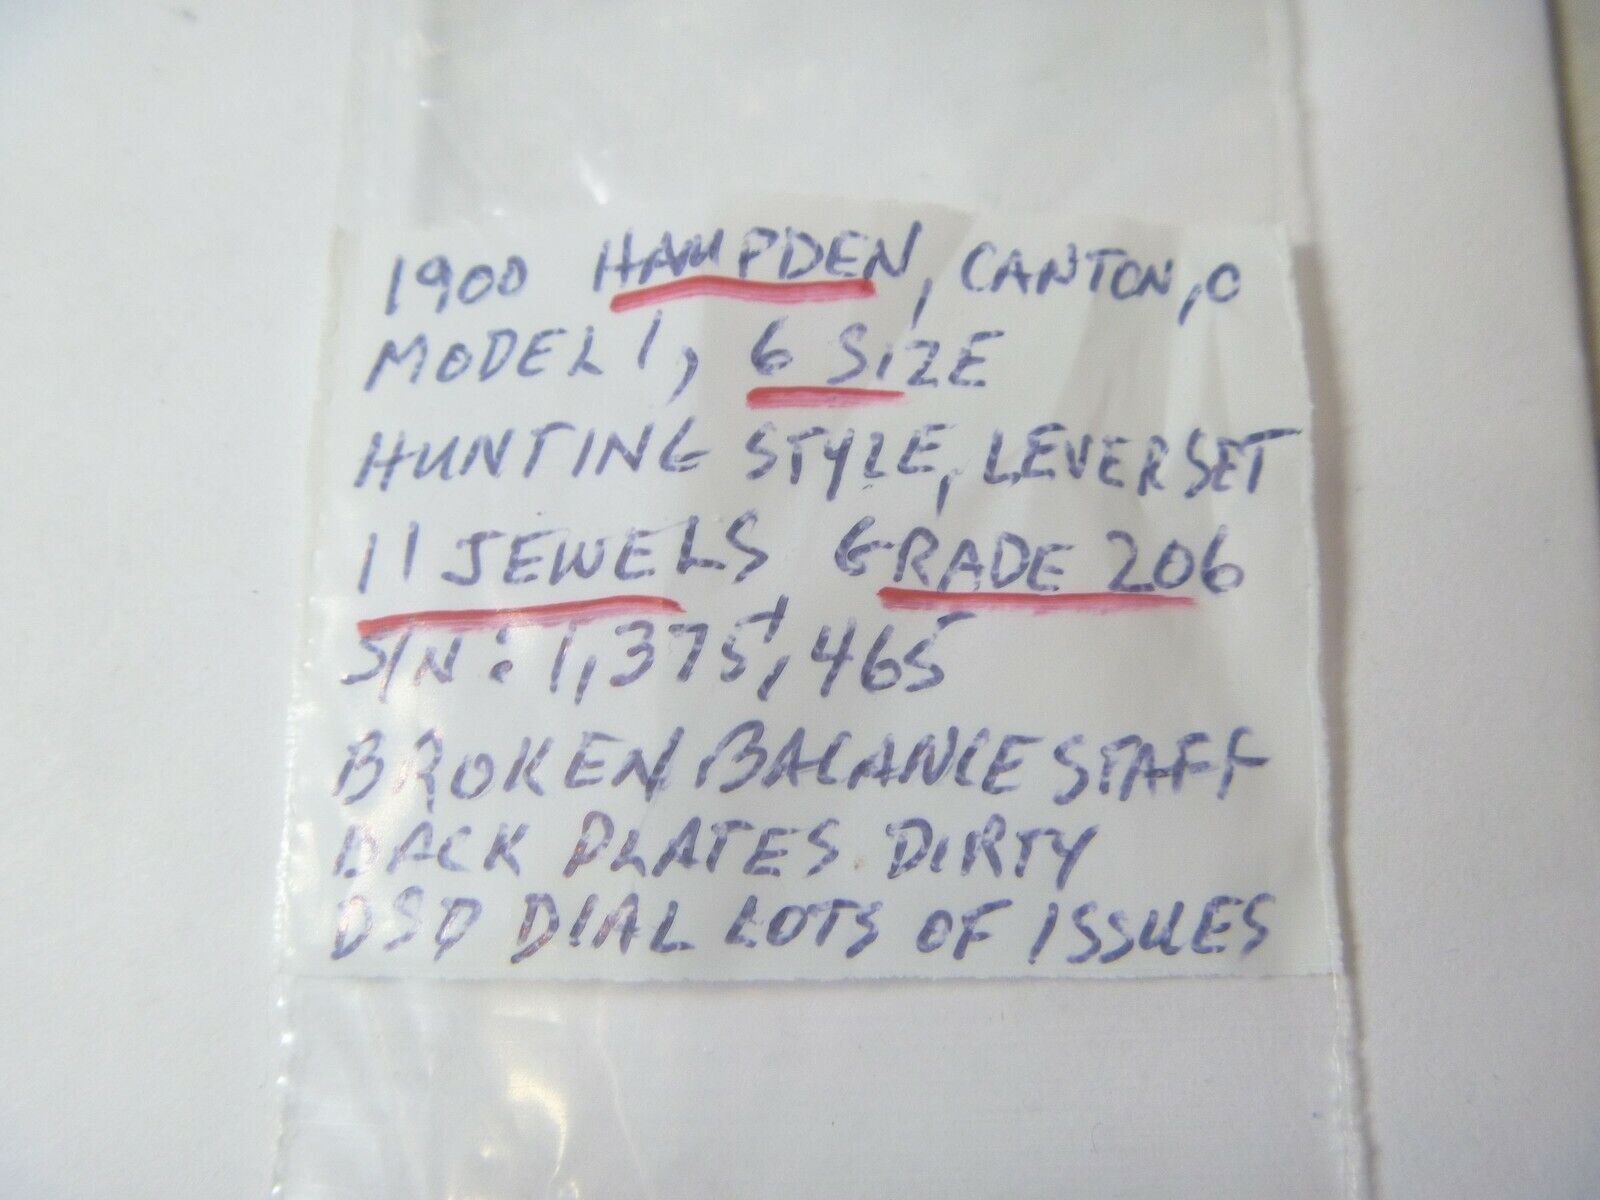 1900 HAMPDEN, CANTON, O
MODEL 1, 6 SIZE
HUNTING STYLE, LEVER SET
11 JEWELS GRADE 206
S/N: 1,375,465
BROKEN BALANCE STAFF
BACK PLATES DIRTY
DSD DIAL LOTS OF ISSUES